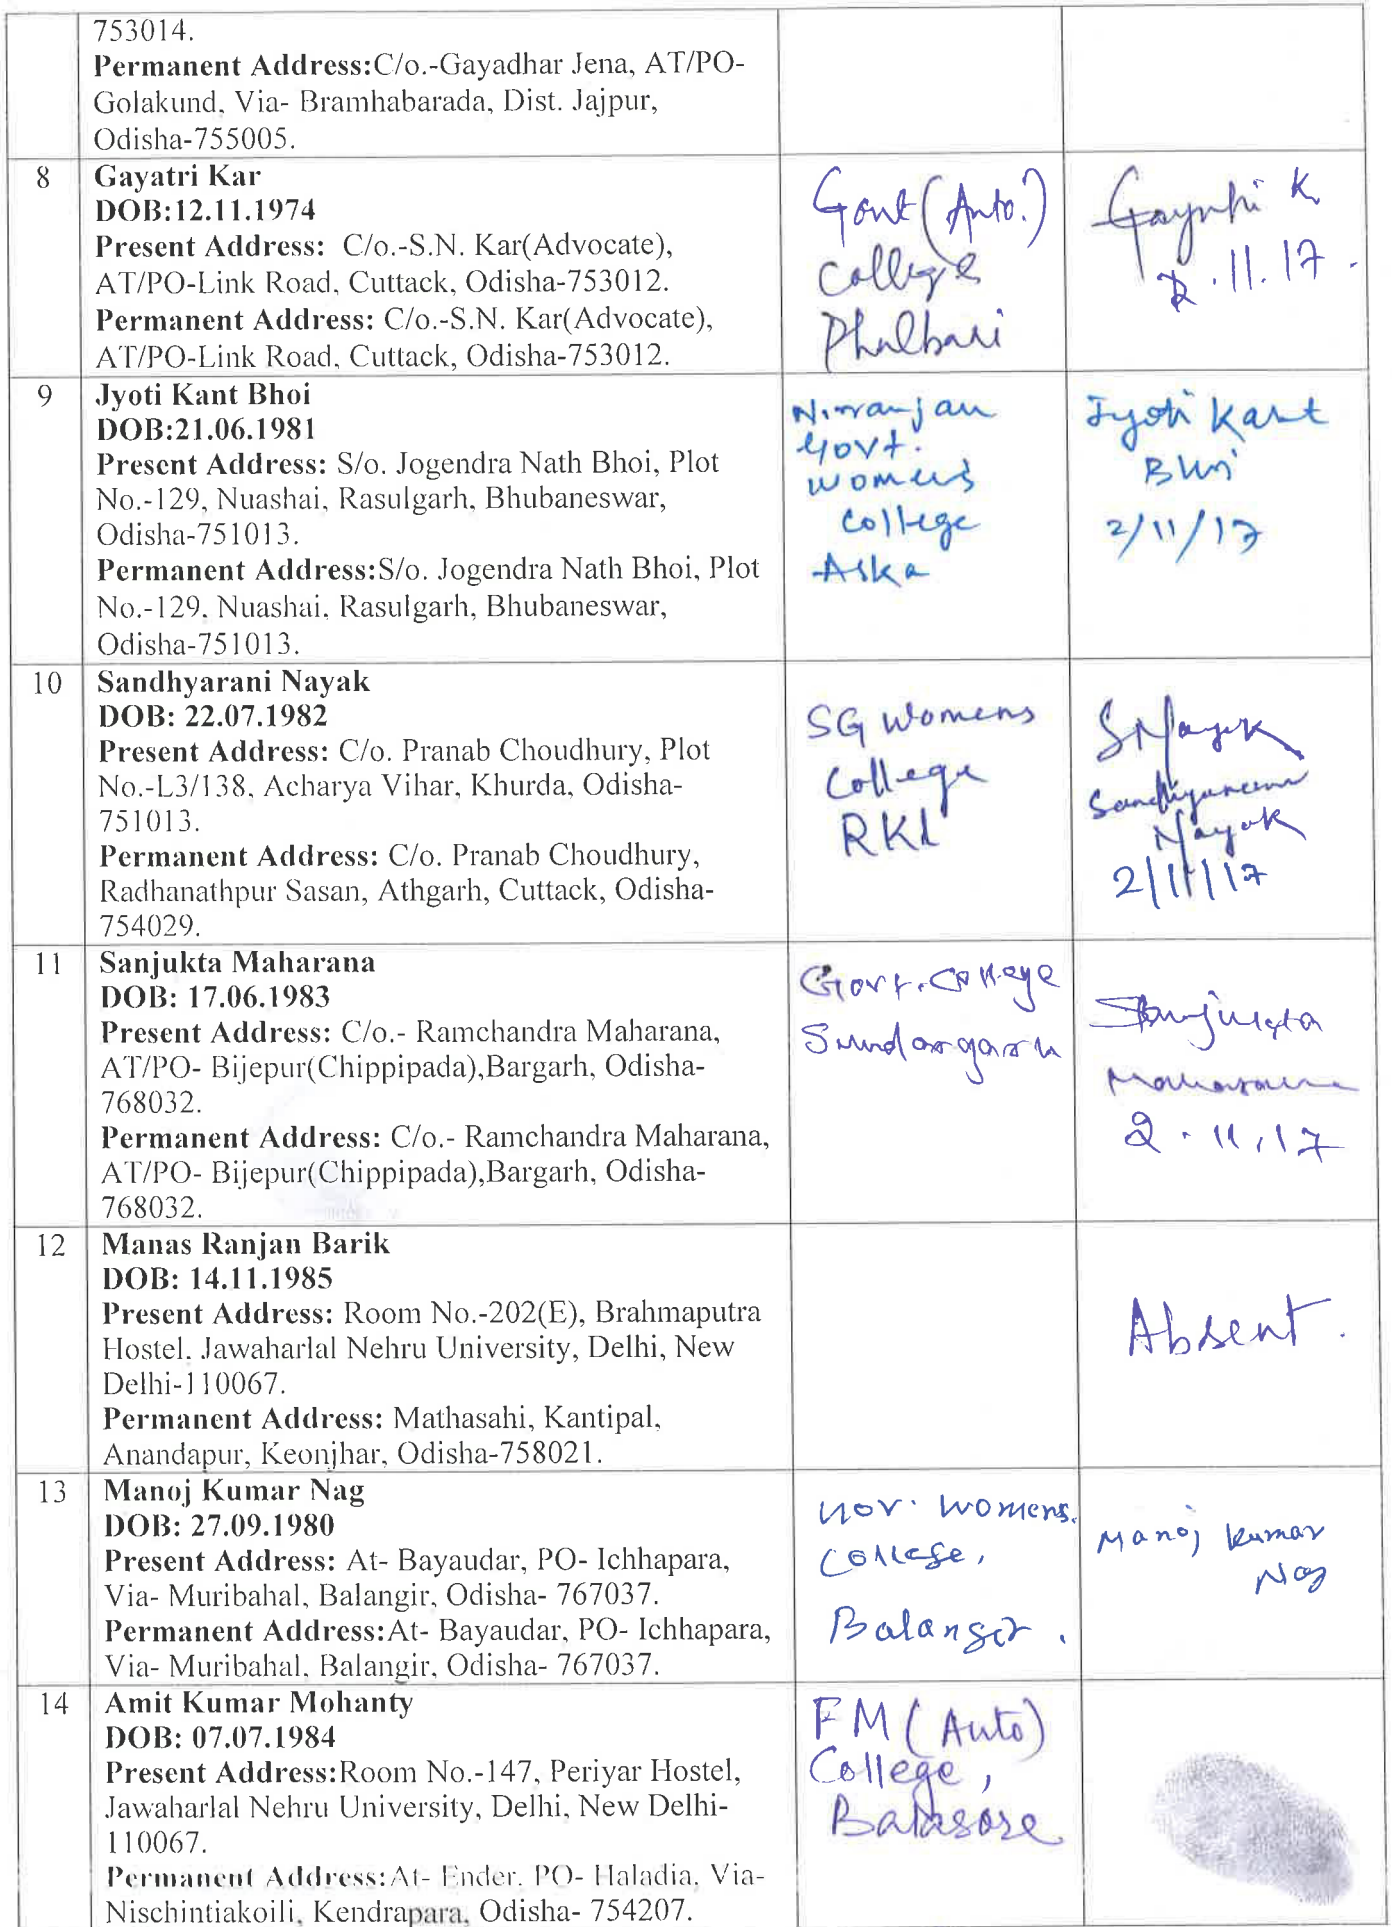 753014.
Permanent Address:C/o.-Gayadhar Jena, AT/PO-
Golakund, Via- Bramhabarada, Dist. Jajpur,
Odisha-755005.
8
Gayatri Kar
DOB:12.11.1974
Present Address: C/o.-S.N. Kar(Advocate),
AT/PO-Link Road, Cuttack, Odisha-753012.
Permanent Address: C/o.-S.N. Kar(Advocate),
AT/PO-Link Road, Cuttack, Odisha-753012.
Govt (Auto.)
College
Phulbani
Gayatri K
2.11.17.
9
Jyoti Kant Bhoi
DOB:21.06.1981
Present Address: S/o. Jogendra Nath Bhoi, Plot
No.-129, Nuashai, Rasulgarh, Bhubaneswar,
Odisha-751013.
Permanent Address:S/o. Jogendra Nath Bhoi, Plot
No.-129, Nuashai, Rasulgarh, Bhubaneswar,
Odisha-751013.
Niranjan
Govt.
Womens
College
Aska
Jyoti Kant
Bhoi
2/11/17
10
Sandhyarani Nayak
DOB: 22.07.1982
Present Address: C/o. Pranab Choudhury, Plot
No.-L3/138, Acharya Vihar, Khurda, Odisha-
751013.
Permanent Address: C/o. Pranab Choudhury,
Radhanathpur Sasan, Athgarh, Cuttack, Odisha-
754029.
SG Womens
College
RKL
SNayak
Sandhyarani
Nayak
2/11/17
11
Sanjukta Maharana
DOB: 17.06.1983
Present Address: C/o.- Ramchandra Maharana,
AT/PO- Bijepur(Chippipada),Bargarh, Odisha-
768032.
Permanent Address: C/o.- Ramchandra Maharana,
AT/PO- Bijepur(Chippipada),Bargarh, Odisha-
768032.
Govt. College
Sundargarh
Sanjukta
Maharana
2.11.17
12
Manas Ranjan Barik
DOB: 14.11.1985
Present Address: Room No.-202(E), Brahmaputra
Hostel, Jawaharlal Nehru University, Delhi, New
Delhi-110067.
Permanent Address: Mathasahi, Kantipal,
Anandapur, Keonjhar, Odisha-758021.
Absent.
13
Manoj Kumar Nag
DOB: 27.09.1980
Present Address: At- Bayaudar, PO- Ichhapara,
Via- Muribahal, Balangir, Odisha- 767037.
Permanent Address:At- Bayaudar, PO- Ichhapara,
Via- Muribahal, Balangir, Odisha- 767037.
Gov. Womens.
College,
Balangir.
Manoj Kumar
Nag
14
Amit Kumar Mohanty
DOB: 07.07.1984
Present Address:Room No.-147, Periyar Hostel,
Jawaharlal Nehru University, Delhi, New Delhi-
110067.
Permanent Address:At- Ender, PO- Haladia, Via-
Nischintiakoili, Kendrapara, Odisha- 754207.
FM (Auto)
College,
Balasore